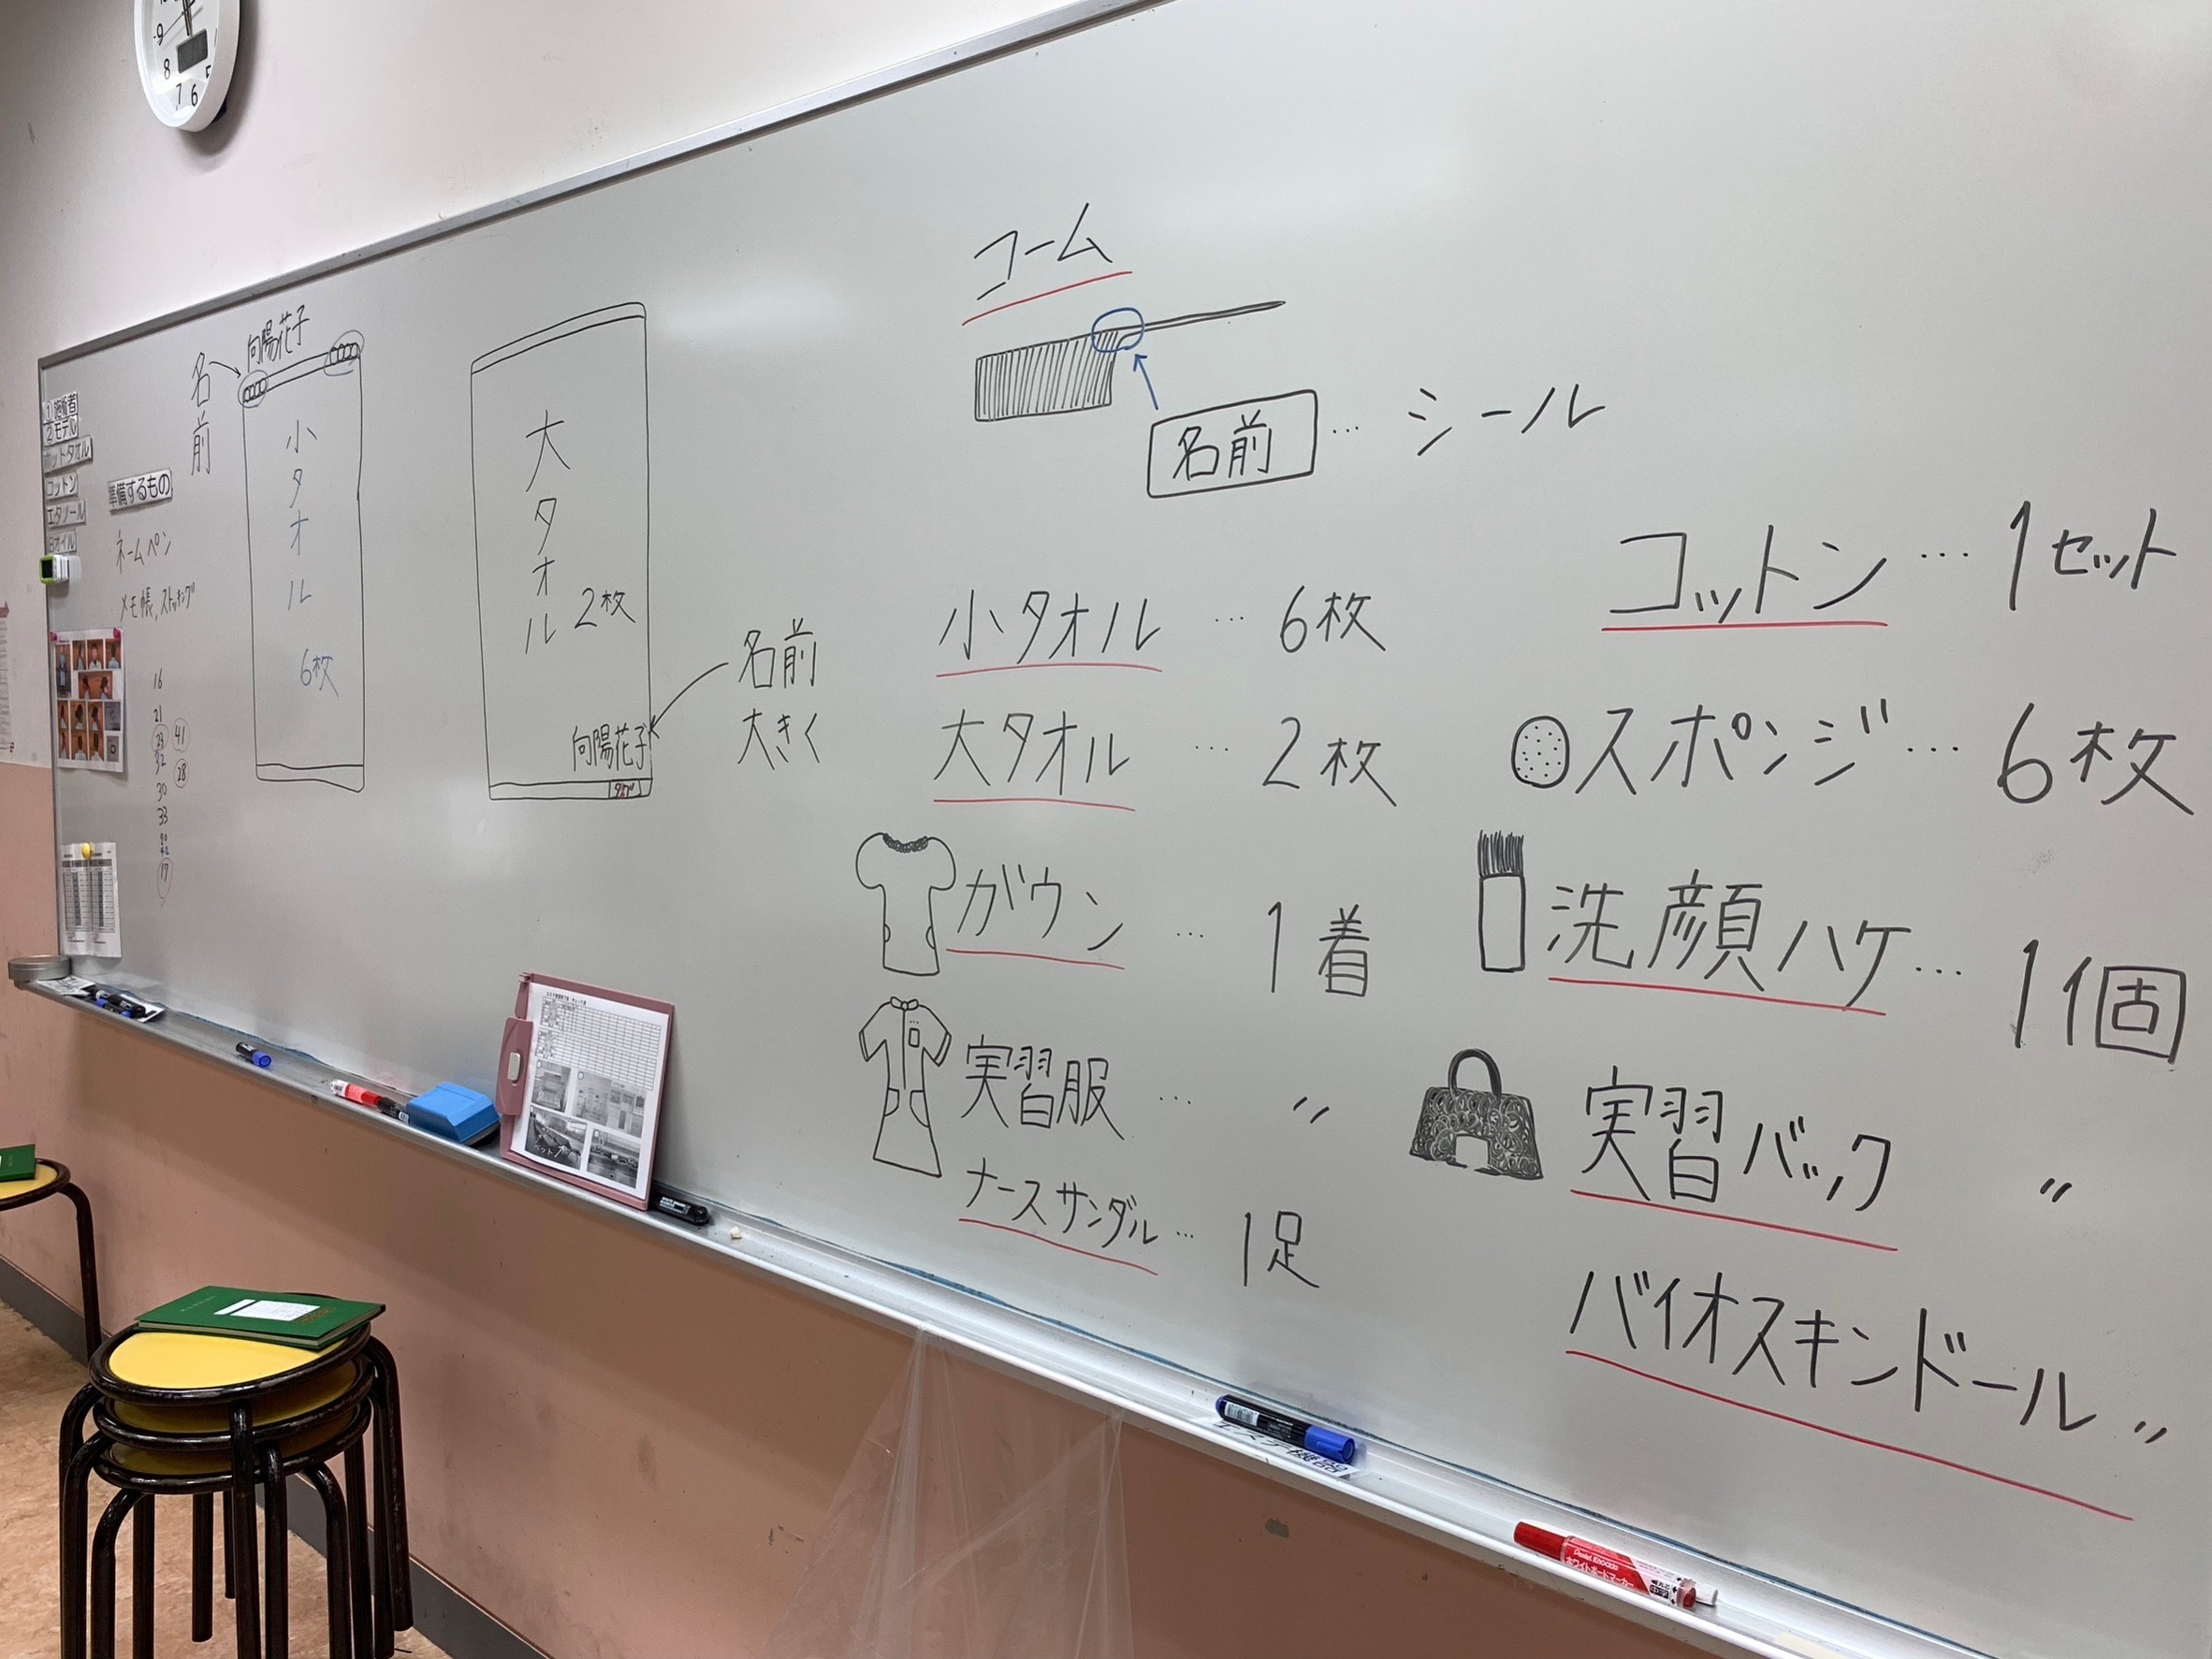 9
8
7 6
5
1 施術者
2 モデル
ホットタオル
コットン
エタノール
準備するもの
ネームペン
メモ帳,ストッキング
16
21
23 41
32 28
30
33
17
名前
向陽花子
小タオル
6枚
大タオル
2枚
向陽花子
タグ
名前
大きく
コーム
名前 … シール
小タオル … 6枚
大タオル … 2枚
ガウン … 1着
実習服 … 〃
ナースサンダル … 1足
コットン … 1セット
スポンジ … 6枚
洗顔ハケ … 1個
実習バック 〃
バイオスキンドール 〃
ベット
ホワイトボードマーカー